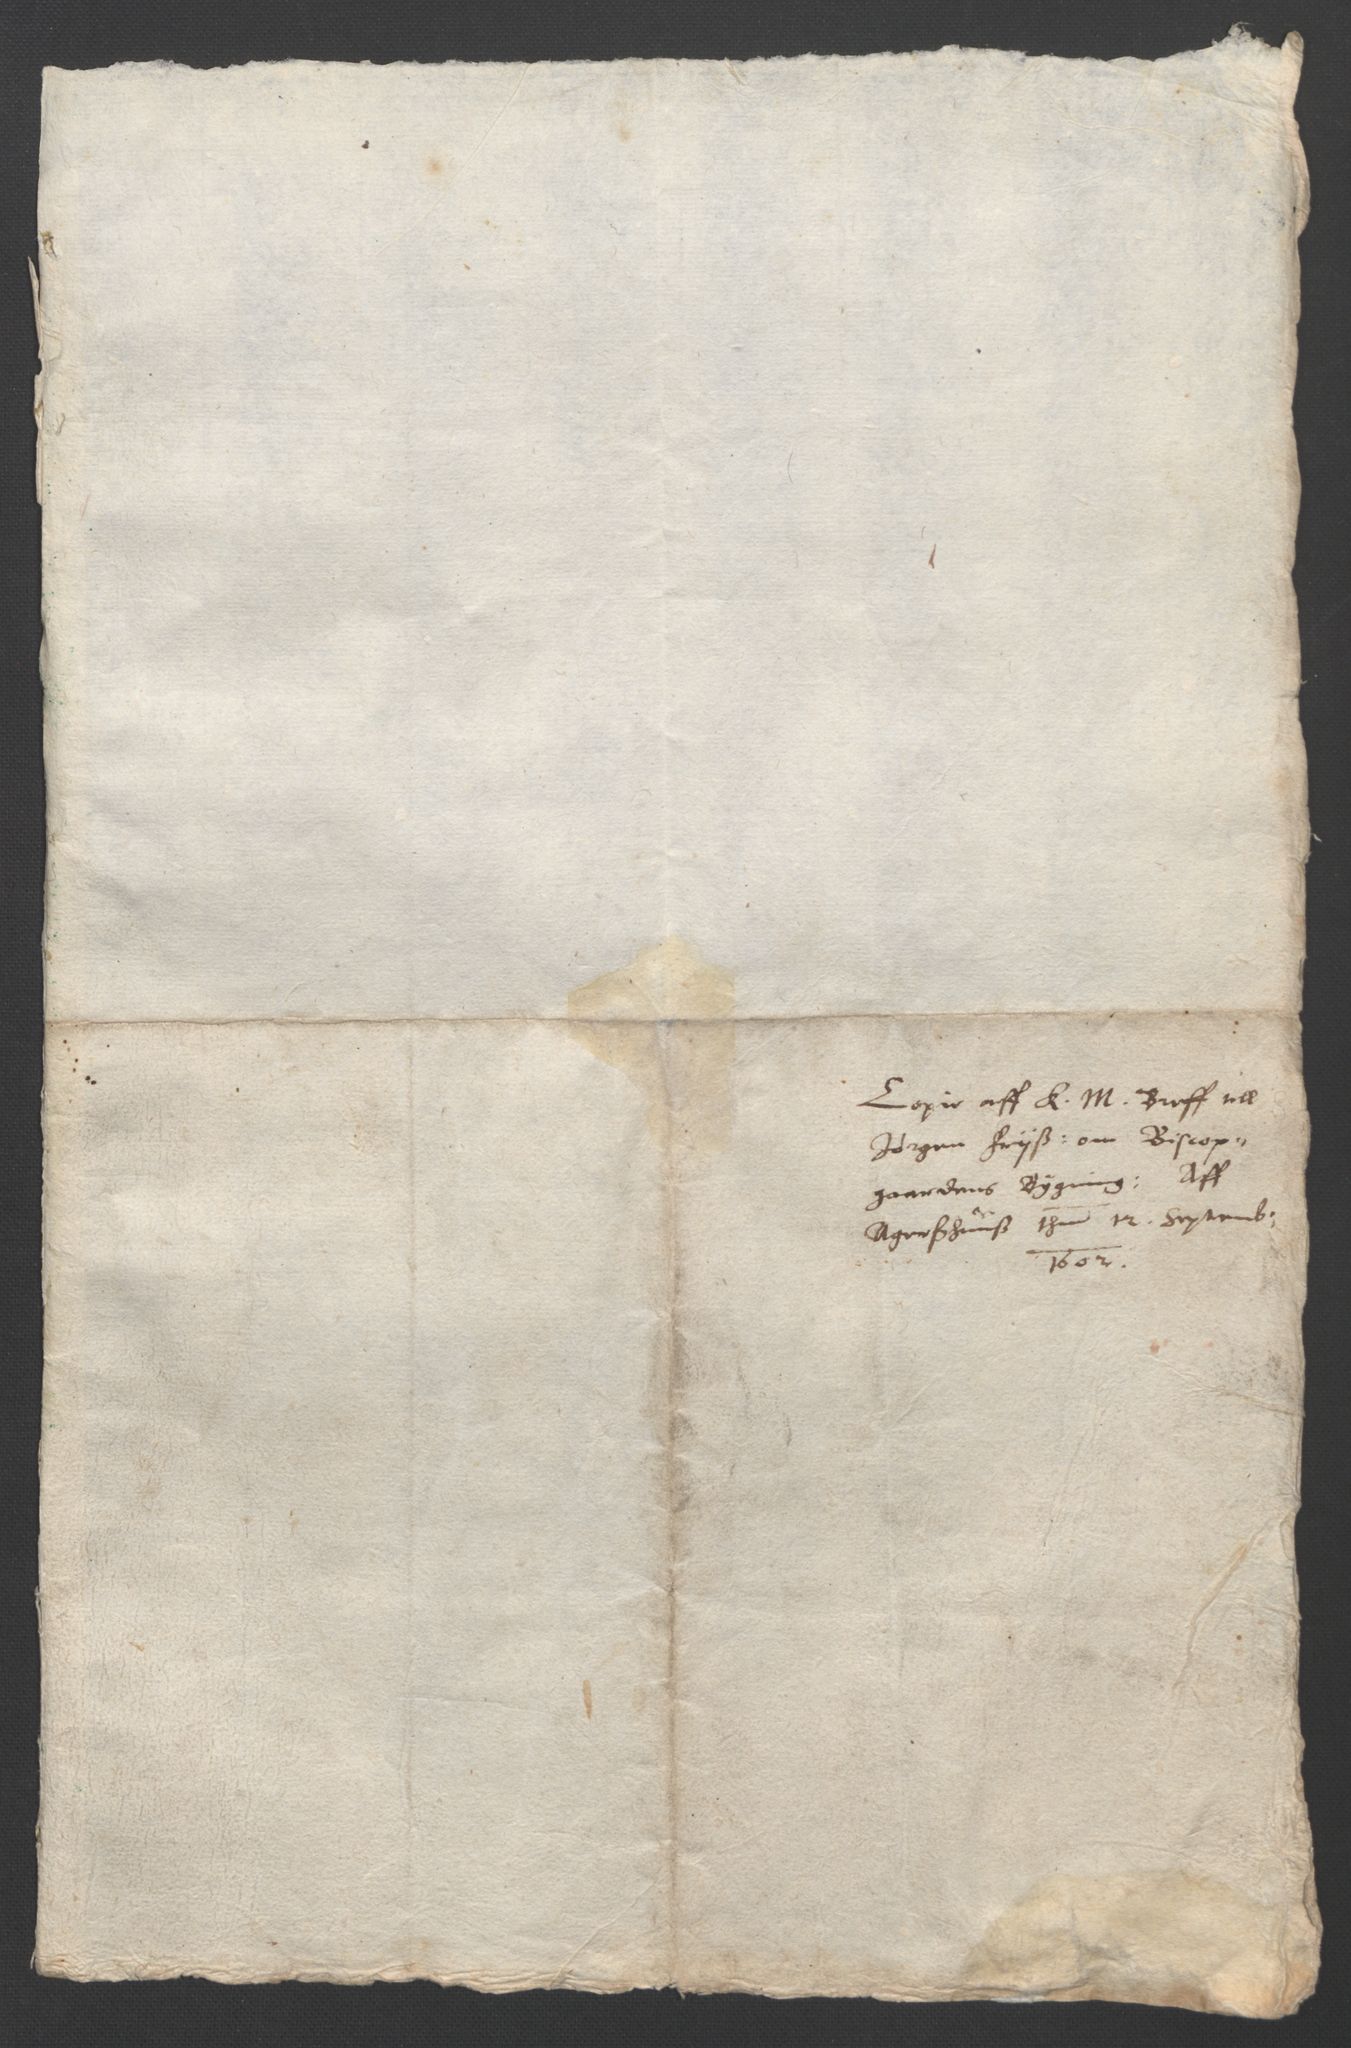 Copie aff K. M. Breff till
Jörgen friiß: om Biscop„
gaardens Bÿgning: Aff
Agerßhuuß thend 12. Septemb:
1602.